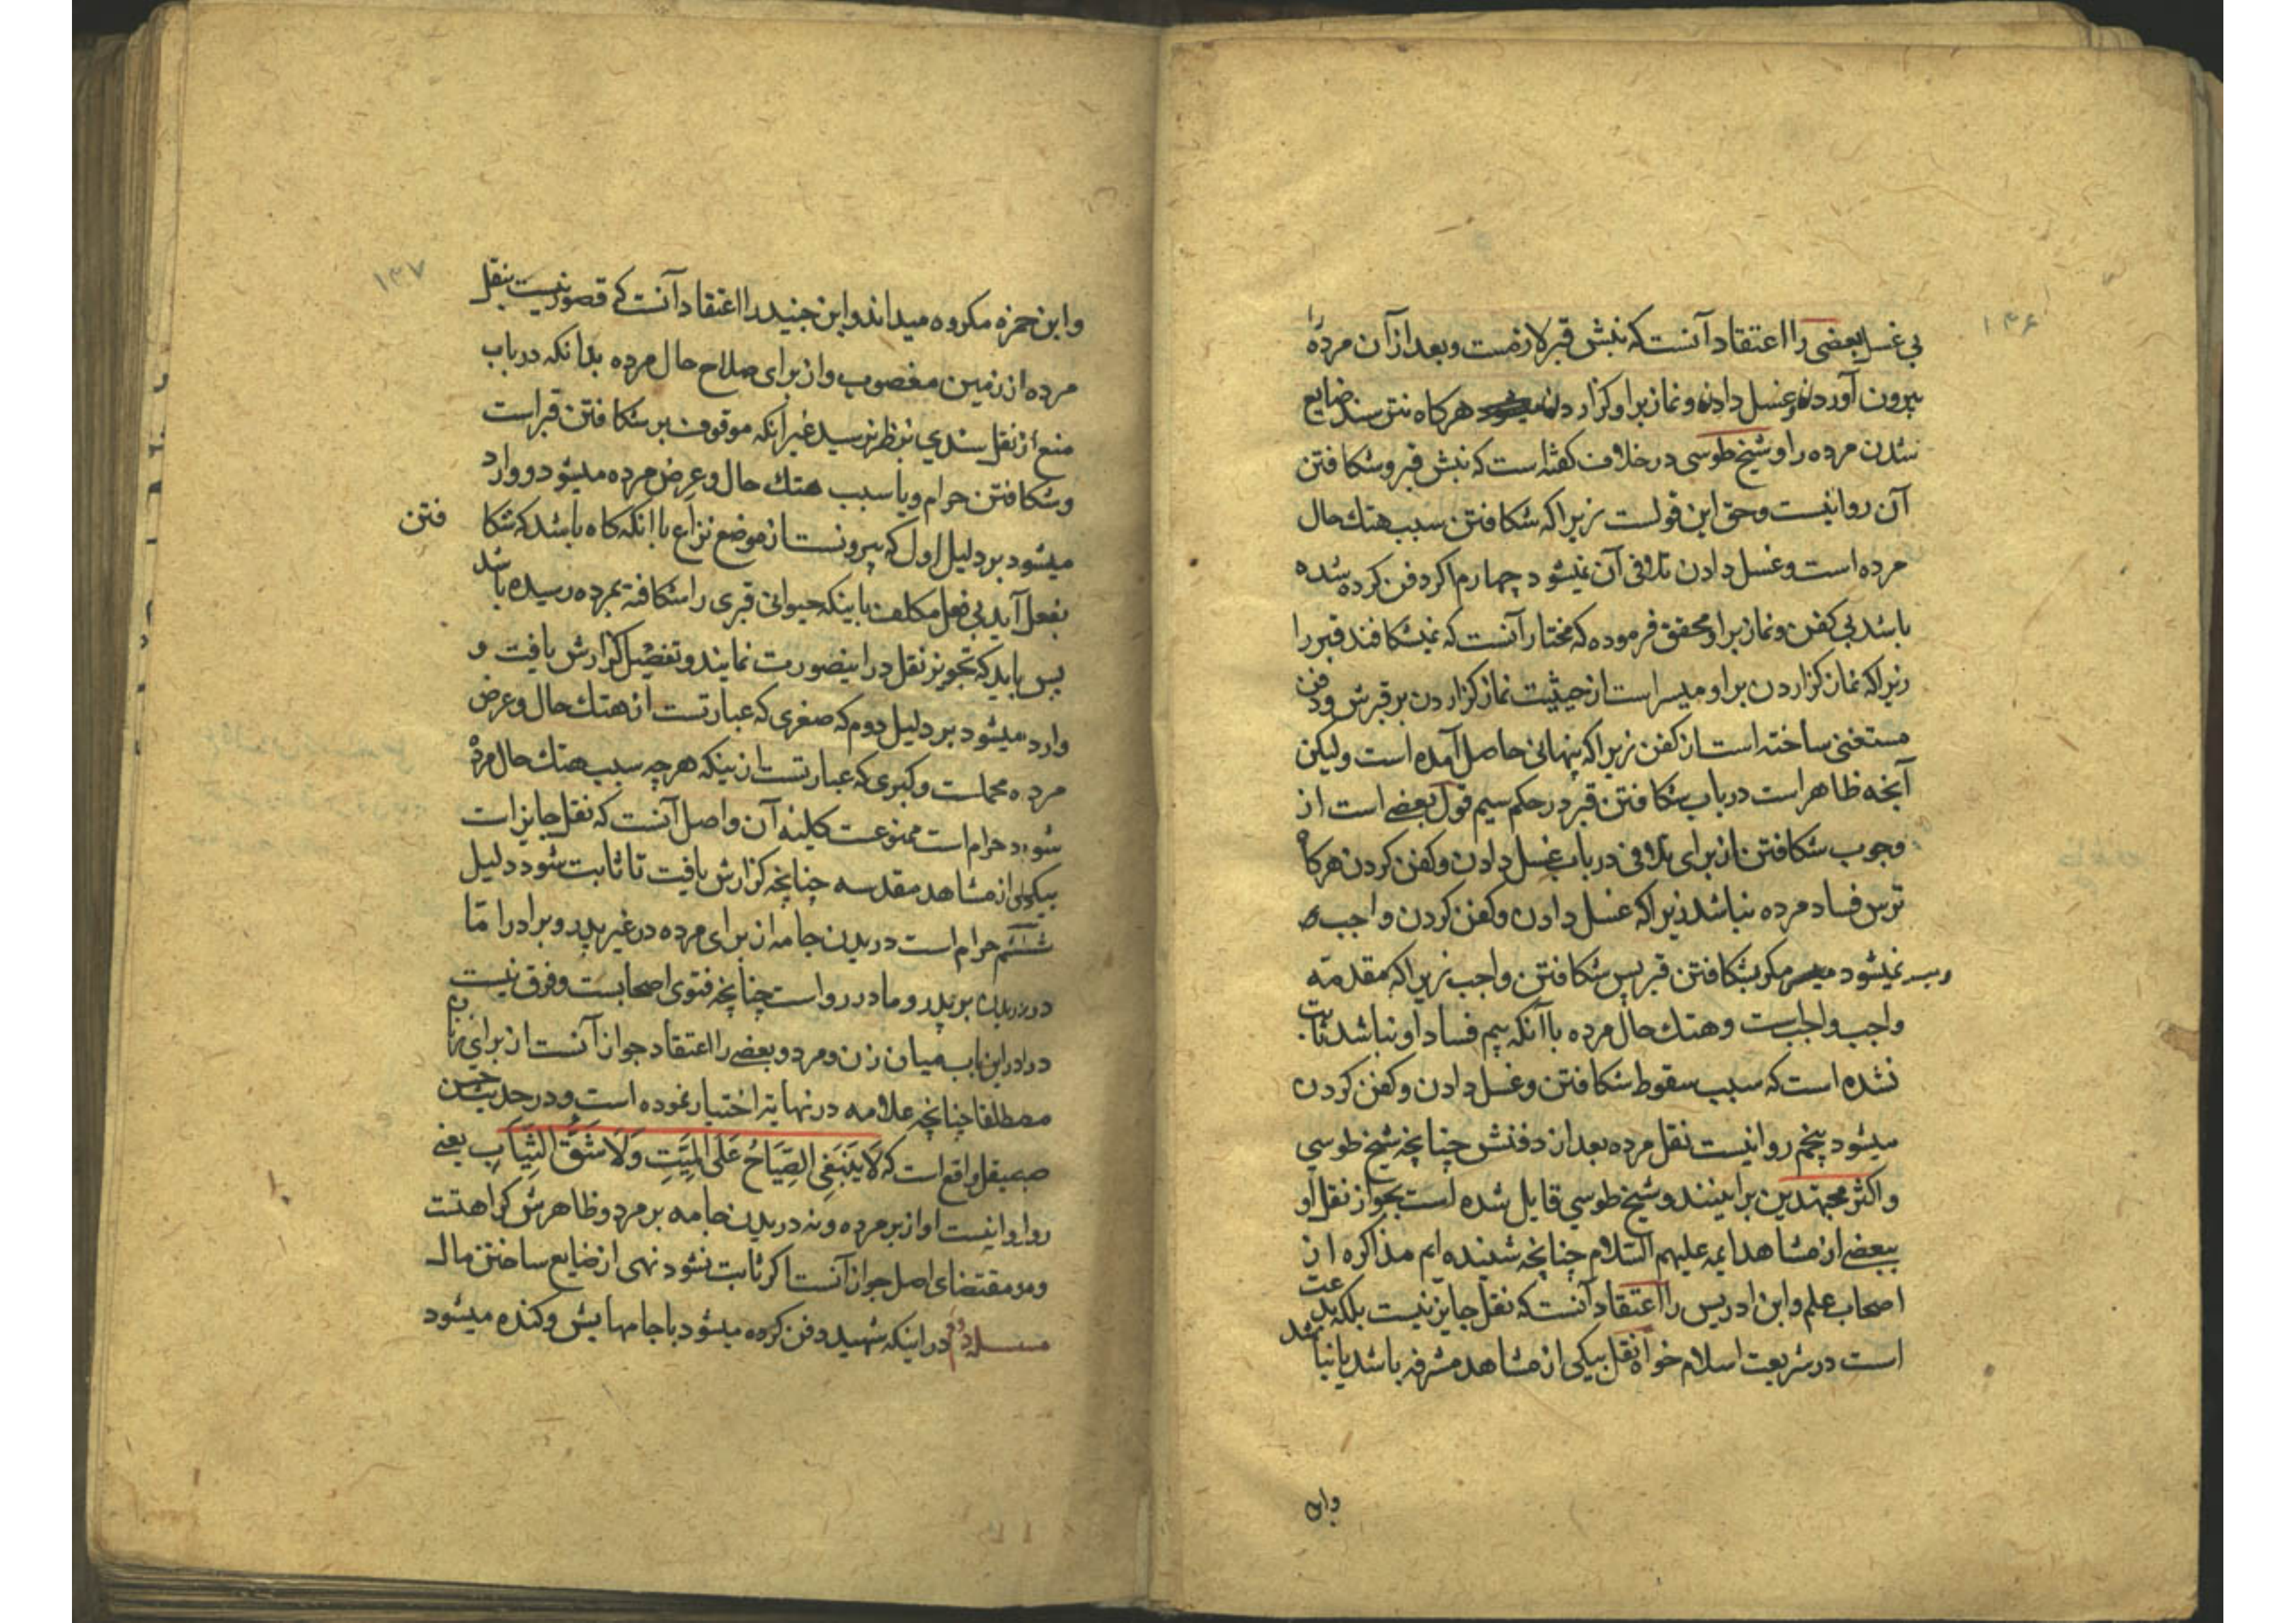 ۱۴۶
بی غسل بعضی را اعتقاد آنست که نبش قبر لازمست و بعد از آن مرده را
بیرون آوردن و غسل دادن و نماز بر او گزاردن هرگاه نترسند ضایع
شدن مرده را و شیخ طوسی در خلاف گفته است که نبش قبر و شکافتن
آن روا نیست و حق این قولست زیرا که شکافتن سبب هتک حال
مرده است و غسل دادن تلافی آن نمیشود چهارم اگر دفن کرده شده
باشد بی کفن و نماز بر او محقق فرموده که مختار آنست که نمیشکافند قبر را
زیرا که نماز گزاردن بر او میسر است از حیثیت نماز گزاردن بر قبرش و دفن
مستغنی ساخته است از کفن زیرا که پنهانی حاصل آمده است ولیکن
آنچه ظاهر است در باب شکافتن قبر در حکم سیم قول بعضی است از
وجوب شکافتن از برای تلافی در باب غسل دادن و کفن کردن هرگاه
ترس فساد مرده نباشد زیرا که غسل دادن و کفن کردن واجب
نمیشود مگر بشکافتن قبر پس شکافتن واجب زیرا که مقدمه
واجب واجبست و هتک حال مرده با آنکه بیم فساد او نباشد ثابت
نشده است که سبب سقوط شکافتن و غسل دادن و کفن کردن
میشود پنجم روا نیست نقل مرده بعد از دفنش چنانچه شیخ طوسی
و اکثر مجتهدین براینند و شیخ طوسی قایل شده است بجواز نقل او
ببعضی از مشاهد ایمه علیهم السلام چنانچه شنیده ایم مذاکره از
اصحاب علم و ابن ادریس را اعتقاد آنست که نقل جایز نیست بلکه بدعت
است در شریعت اسلام خواه نقل بیکی از مشاهد مشرفه باشد یا نباشد
وابن
۱۴۷
وابن حمزه مکروه میداند و ابن جنید را اعتقاد آنست که قصور نیست بنقل
مرده از زمین مغصوب و از برای صلاح حال مرده بدانکه در باب
منع از نقل سندی بنظر نرسید غیر آنکه موقوف بر شکافتن قبر است
و شکافتن حرام و یا سبب هتک حال و عرض مرده میشود و وارد
میشود بر دلیل اول که بیرونست از موضع نزاع با انکه گاه باشد که شکا فتن
بفعل آید بی فعل مکلف بابینکه حیوانی قبری را شکافته بمرده رسیده باشد
پس باید که تجویز نقل در اینصورت نمایند و تفصیل گزارش یافت و
وارد میشود بر دلیل دوم که صغری که عبارتست از هتک حال و عرض
مرده محملست و کبری که عبارتست از ینکه هر چه سبب هتک حال مرده
شود حرام است ممنوعست کلیه آن و اصل آنست که نقل جایز است
بیکی از مشاهد مقدسه چنانچه گزارش یافت تا ثابت شود دلیل
ششم حرام است دریدن جامه از برای مرده در غیر پدر و برادر اما
دریدن بر پدر و مادر رواست چنانچه فتوی اصحابست و فرق نیست
در این باب میان زن و مرد و بعضی را اعتقاد جواز آنست از برای زنان
مطلقا چنانچه علامه در نهایه اختیار نموده است و در حدیث حسن
صیقل واقع است که لَا یَنبَغِی الصِّیَاحُ عَلَی المَیِّتِ وَلَا شَقُّ الثِّیَابِ یعنی
روا نیست اواز بر مرده و نه دریدن جامه بر مرد و ظاهرش کراهتست
و مقتضای اصل جواز آنست اگر ثابت نشود نهی از ضایع ساختن مال
مسله دوم در اینکه شهید دفن کرده میشود با جامهایش و کنده میشود